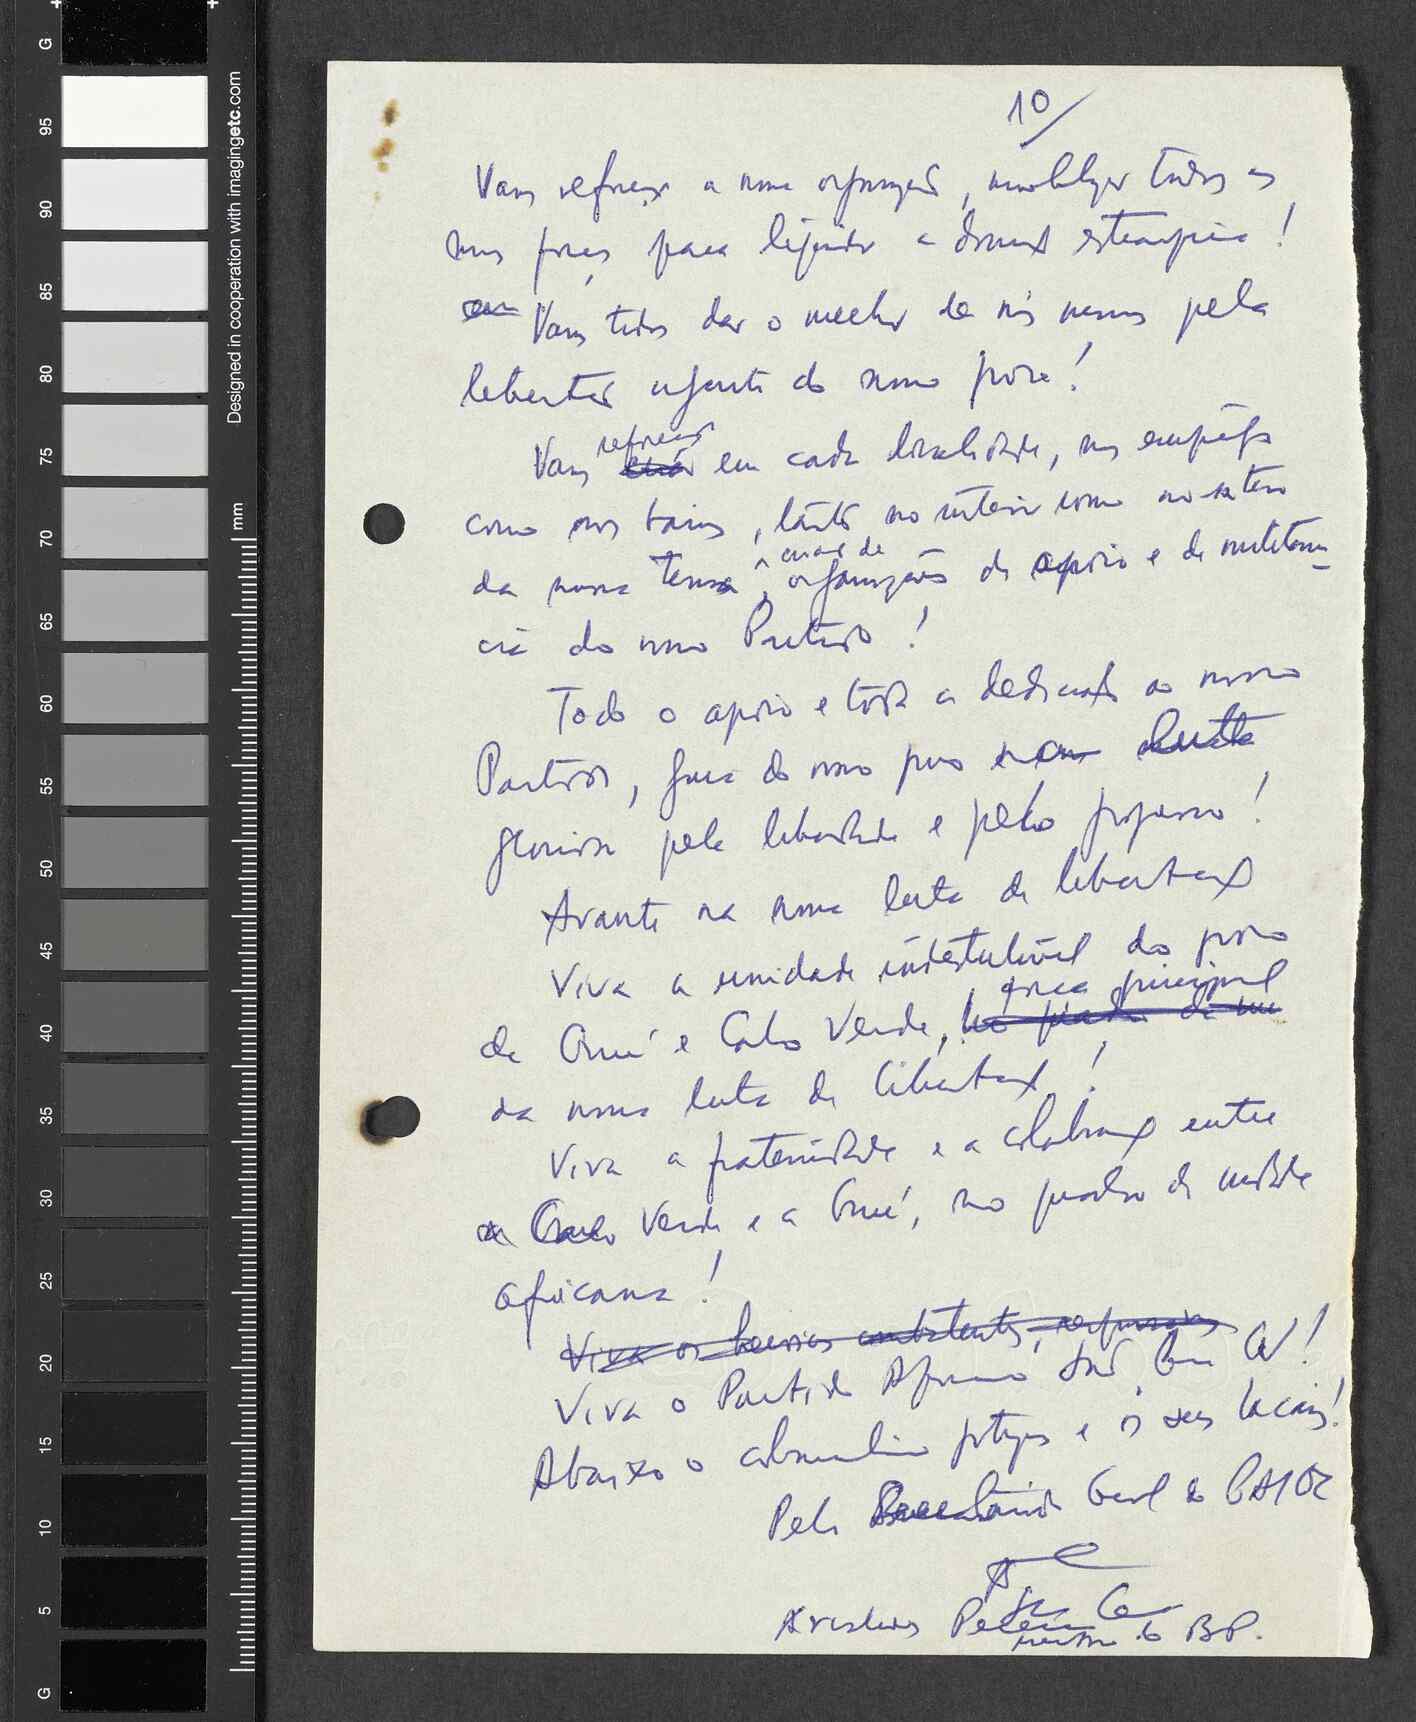 10/
Vamos reforçar a nossa organização, mobilizar todas as
nossas forças para liquidar a dominação estrangeira!
Vamos todos dar o melhor de nós mesmos pela
libertação urgente do nosso povo!
Vamos reforçar em cada localidade, nos empregos
como nos bairros, tanto no interior como no exterior
da nossa terra, criar de organizações de apoio e de militân-
cia do nosso Partido!
Todo o apoio e toda a dedicação ao nosso
Partido, guia do nosso povo na luta
gloriosa pela liberdade e pelo progresso!
Avante na nossa luta de libertação
Viva a unidade indestrutível do povo
da Guiné e Cabo Verde, força principal
da nossa luta de libertação!
Viva a fraternidade e a colaboração entre
Cabo Verde e a Guiné, no quadro da unidade
africana!
Viva os heroicos combatentes,
Viva o Partido Africano Guiné CV!
Abaixo o colonialismo português e os seus lacaios!
Pelo Secretário Geral do PAIGC
Aristides Pereira
membro do BP.
G
95
90
85
80
75
70
65
60
55
50
45
40
35
30
25
20
15
10
5
G
Designed in cooperation with imagingetc.com
mm